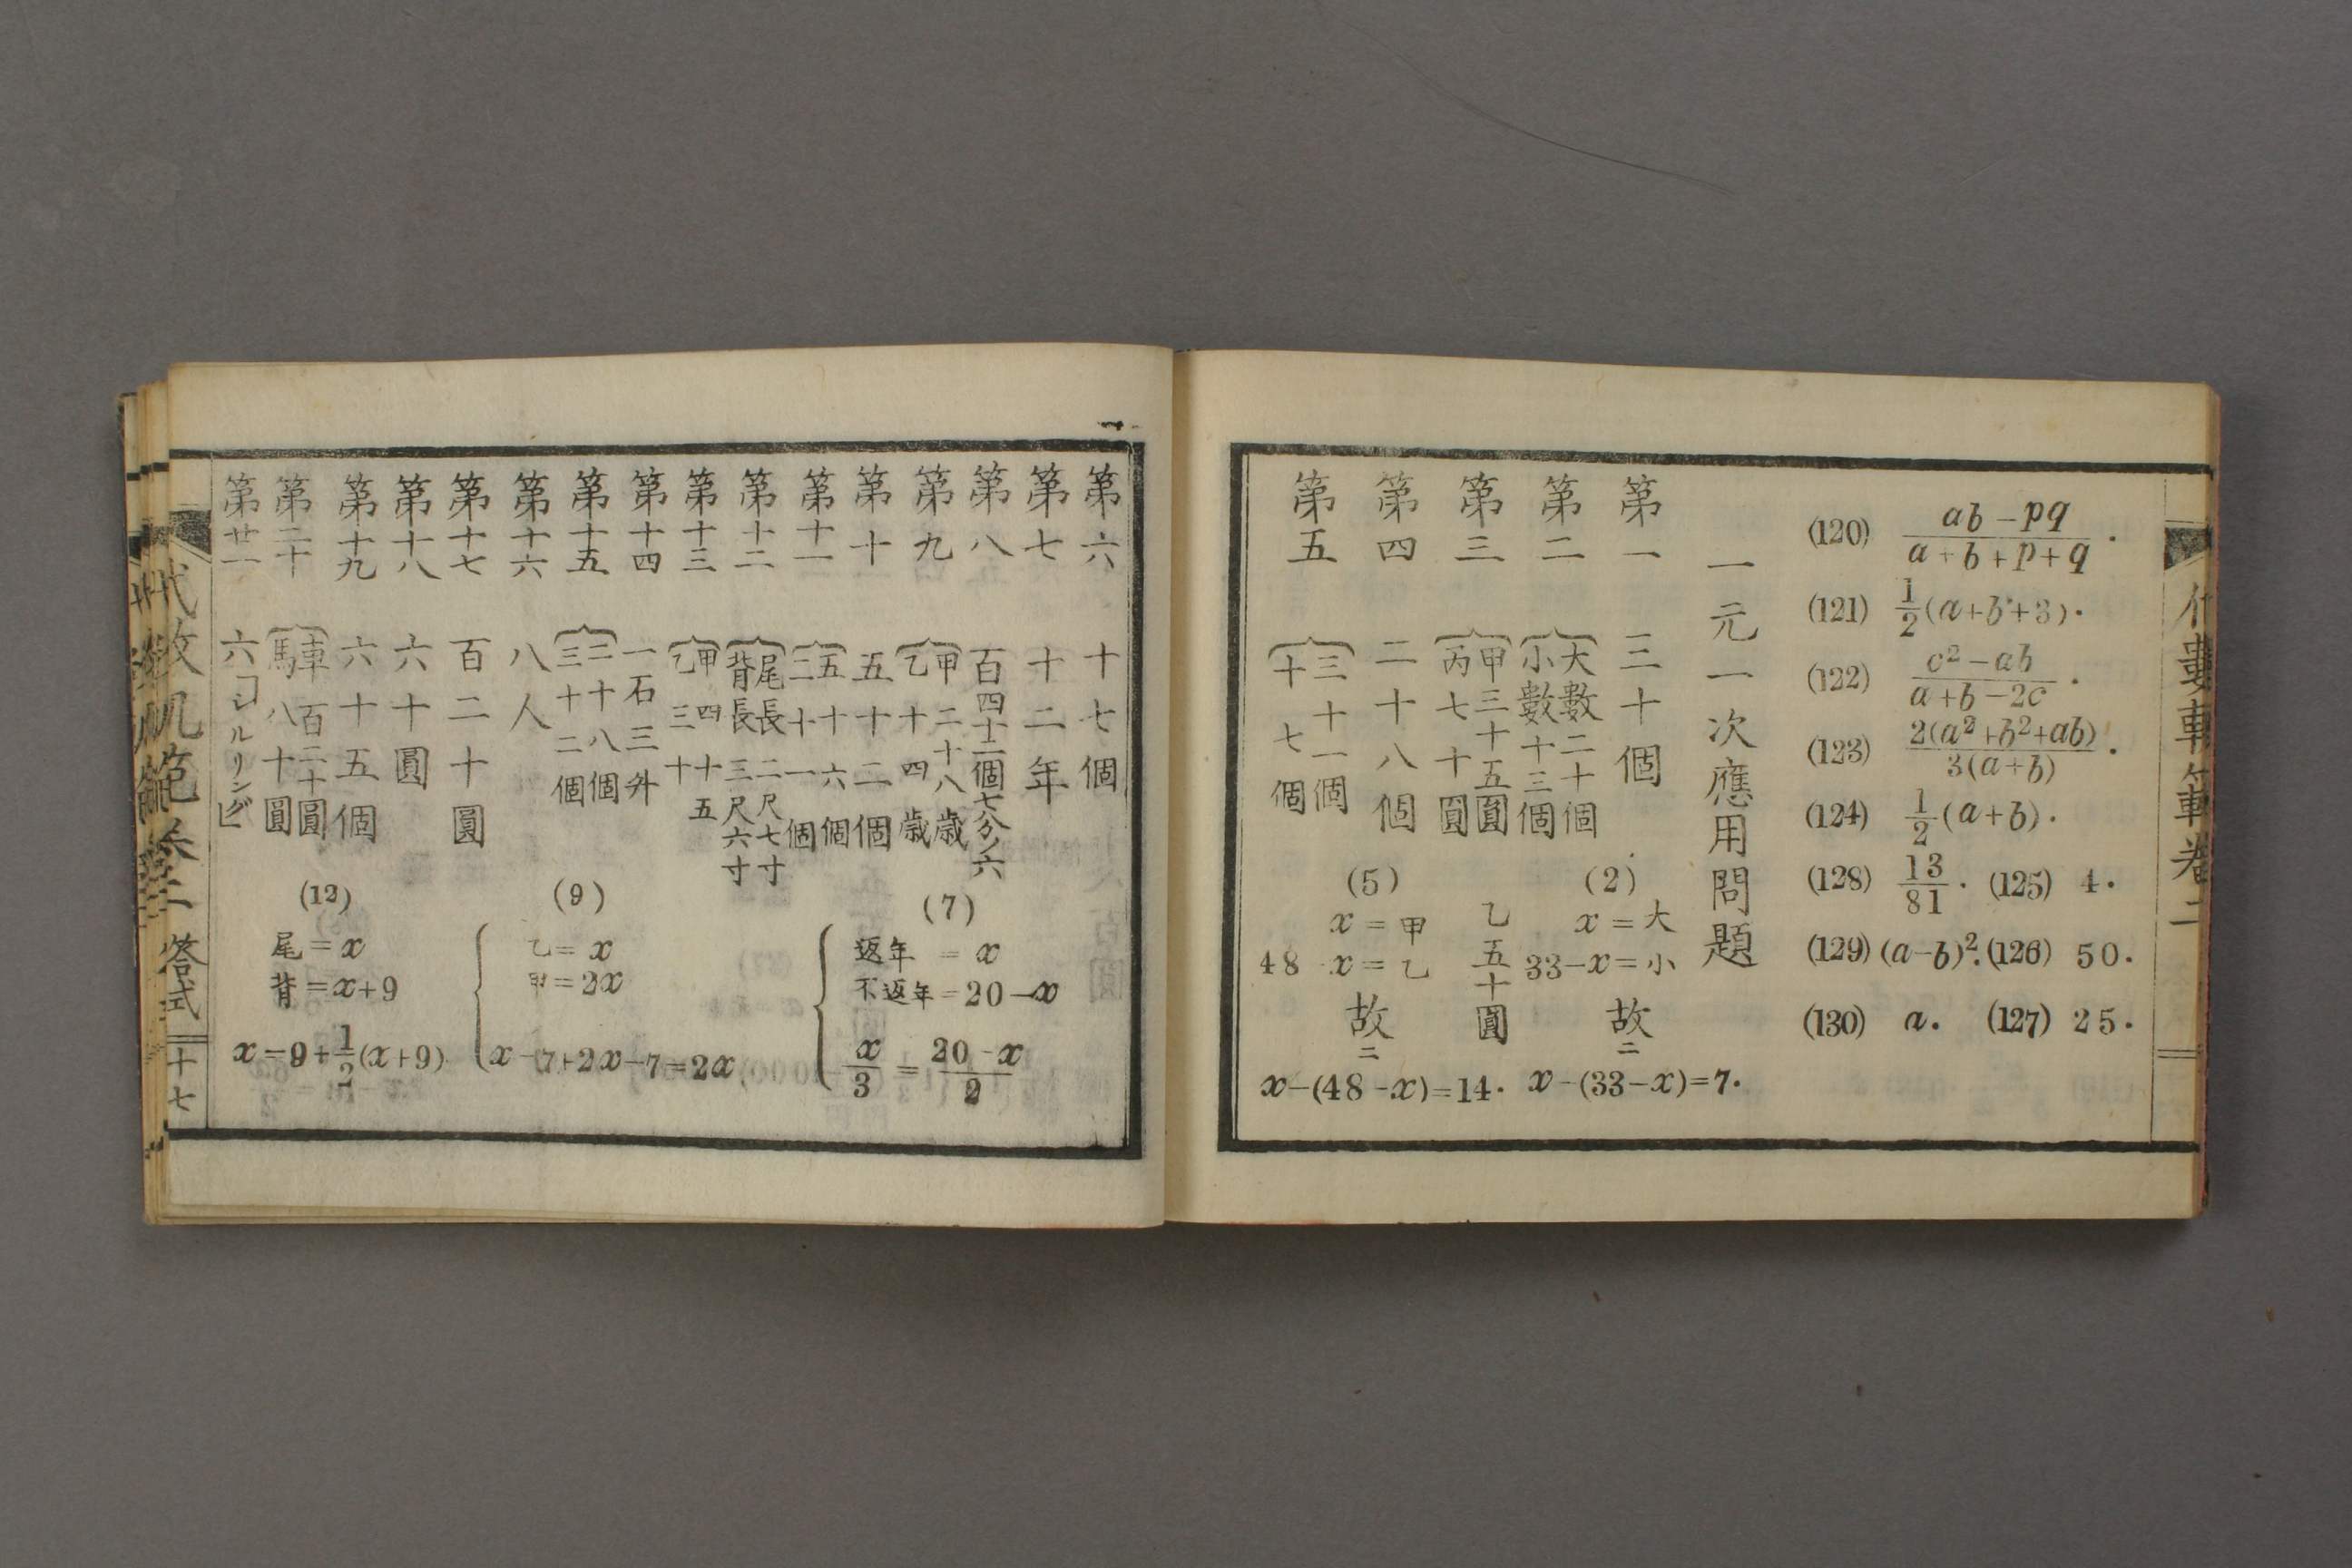 (120) (ab-pq)/(a+b+p+q).
(121) 1/2(a+b+3).
(122) (c²-ab)/(a+b-2c).
(123) 2(a²+b²+ab)/3(a+b).
(124) 1/2(a+b).
(128) 13/81. (125) 4.
(129) (a-b)². (126) 50.
(130) a. (127) 25.
一元一次應用問題
第一 三十個
第二 大數二十個
小數十三個
(2)
x=大
33-x=小
故ニ
x-(33-x)=7.
第三 甲三十五圓
乙五十圓
丙七十圓
第四 二十八個
第五 三十一個
十七個
(5)
x=甲
48-x=乙
故ニ
x-(48-x)=14.
第六 十七個
第七 十二年
第八 百四十二個七分ノ六
第九 甲二十八歳
乙十四歳
(7)
返年=x
不返年=20-x
x/3=(20-x)/2
第十 五十二個
第十一 五十六個
二十一個
第十二 尾長二尺七寸
背長三尺六寸
第十三 甲四十五
乙三十
第十四 一石三升
第十五 二十八個
三十二個
第十六 八人
(9)
乙=x
甲=2x
x-7+2x-7=2x
第十七 百二十圓
第十八 六十圓
第十九 六十五個
第二十 車百二十圓
馬八十圓
第廿一 六「シルリング」
(12)
尾=x
背=x+9
x=9+1/2(x+9)
代數軌範卷二 答式 十七